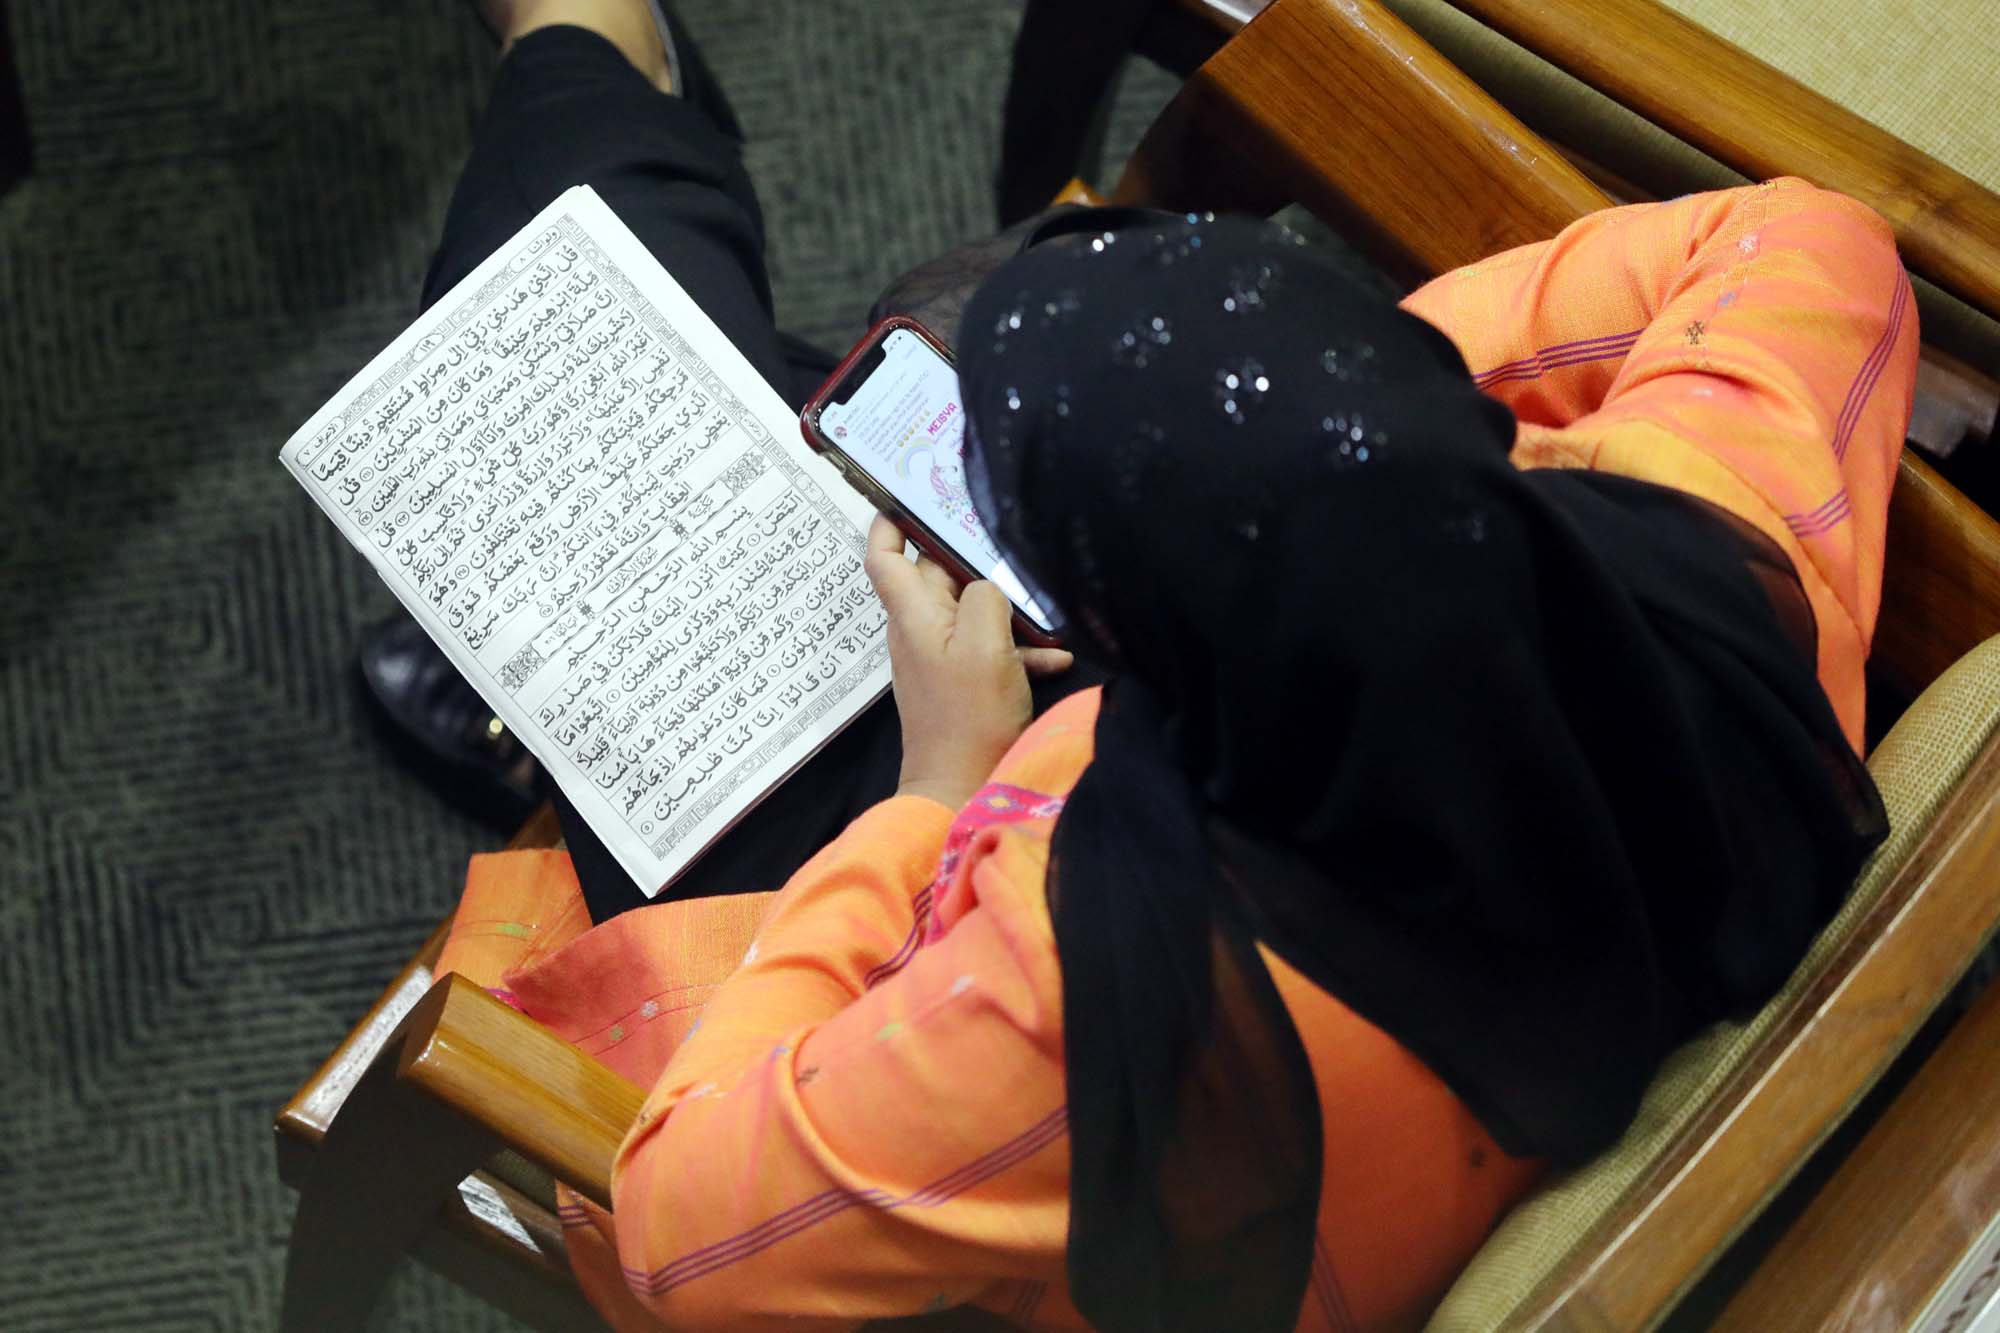 ولو اننا ٨
١١٩
الاعراف ٧
قُلْ اِنَّنِيْ هَدٰىنِيْ رَبِّيْٓ اِلٰى صِرَاطٍ مُّسْتَقِيْمٍ ۚ دِيْنًا قِيَمًا
مِّلَّةَ اِبْرٰهِيْمَ حَنِيْفًا ۚ وَمَا كَانَ مِنَ الْمُشْرِكِيْنَ ﴿١٦١﴾ قُلْ
اِنَّ صَلَاتِيْ وَنُسُكِيْ وَمَحْيَايَ وَمَمَاتِيْ لِلّٰهِ رَبِّ الْعٰلَمِيْنَ ﴿١٦٢﴾
لَا شَرِيْكَ لَهٗ ۚ وَبِذٰلِكَ اُمِرْتُ وَاَنَا اَوَّلُ الْمُسْلِمِيْنَ ﴿١٦٣﴾ قُلْ
اَغَيْرَ اللّٰهِ اَبْغِيْ رَبًّا وَّهُوَ رَبُّ كُلِّ شَيْءٍ ۗ وَلَا تَكْسِبُ كُلُّ
نَفْسٍ اِلَّا عَلَيْهَا ۚ وَلَا تَزِرُ وَازِرَةٌ وِّزْرَ اُخْرٰى ۚ ثُمَّ اِلٰى رَبِّكُمْ
مَّرْجِعُكُمْ فَيُنَبِّئُكُمْ بِمَا كُنْتُمْ فِيْهِ تَخْتَلِفُوْنَ ﴿١٦٤﴾ وَهُوَ
الَّذِيْ جَعَلَكُمْ خَلٰٓئِفَ الْاَرْضِ وَرَفَعَ بَعْضَكُمْ فَوْقَ
بَعْضٍ دَرَجٰتٍ لِّيَبْلُوَكُمْ فِيْ مَآ اٰتٰىكُمْ ۗ اِنَّ رَبَّكَ سَرِيْعُ
الْعِقَابِ وَاِنَّهٗ لَغَفُوْرٌ رَّحِيْمٌ ﴿١٦٥﴾
سُوْرَةُ الْاَعْرَافِ
بِسْمِ اللّٰهِ الرَّحْمٰنِ الرَّحِيْمِ
الۤمّۤصۤ ﴿١﴾ كِتٰبٌ اُنْزِلَ اِلَيْكَ فَلَا يَكُنْ فِيْ صَدْرِكَ
حَرَجٌ مِّنْهُ لِتُنْذِرَ بِهٖ وَذِكْرٰى لِلْمُؤْمِنِيْنَ ﴿٢﴾ اِتَّبِعُوْا مَآ
اُنْزِلَ اِلَيْكُمْ مِّنْ رَّبِّكُمْ وَلَا تَتَّبِعُوْا مِنْ دُوْنِهٖٓ اَوْلِيَآءَ ۗ قَلِيْلًا
مَّا تَذَكَّرُوْنَ ﴿٣﴾ وَكَمْ مِّنْ قَرْيَةٍ اَهْلَكْنٰهَا فَجَآءَهَا بَأْسُنَا
بَيَاتًا اَوْ هُمْ قَآئِلُوْنَ ﴿٤﴾ فَمَا كَانَ دَعْوٰىهُمْ اِذْ جَآءَهُمْ
بَأْسُنَآ اِلَّآ اَنْ قَالُوْٓا اِنَّا كُنَّا ظٰلِمِيْنَ ﴿٥﴾
MEISYA